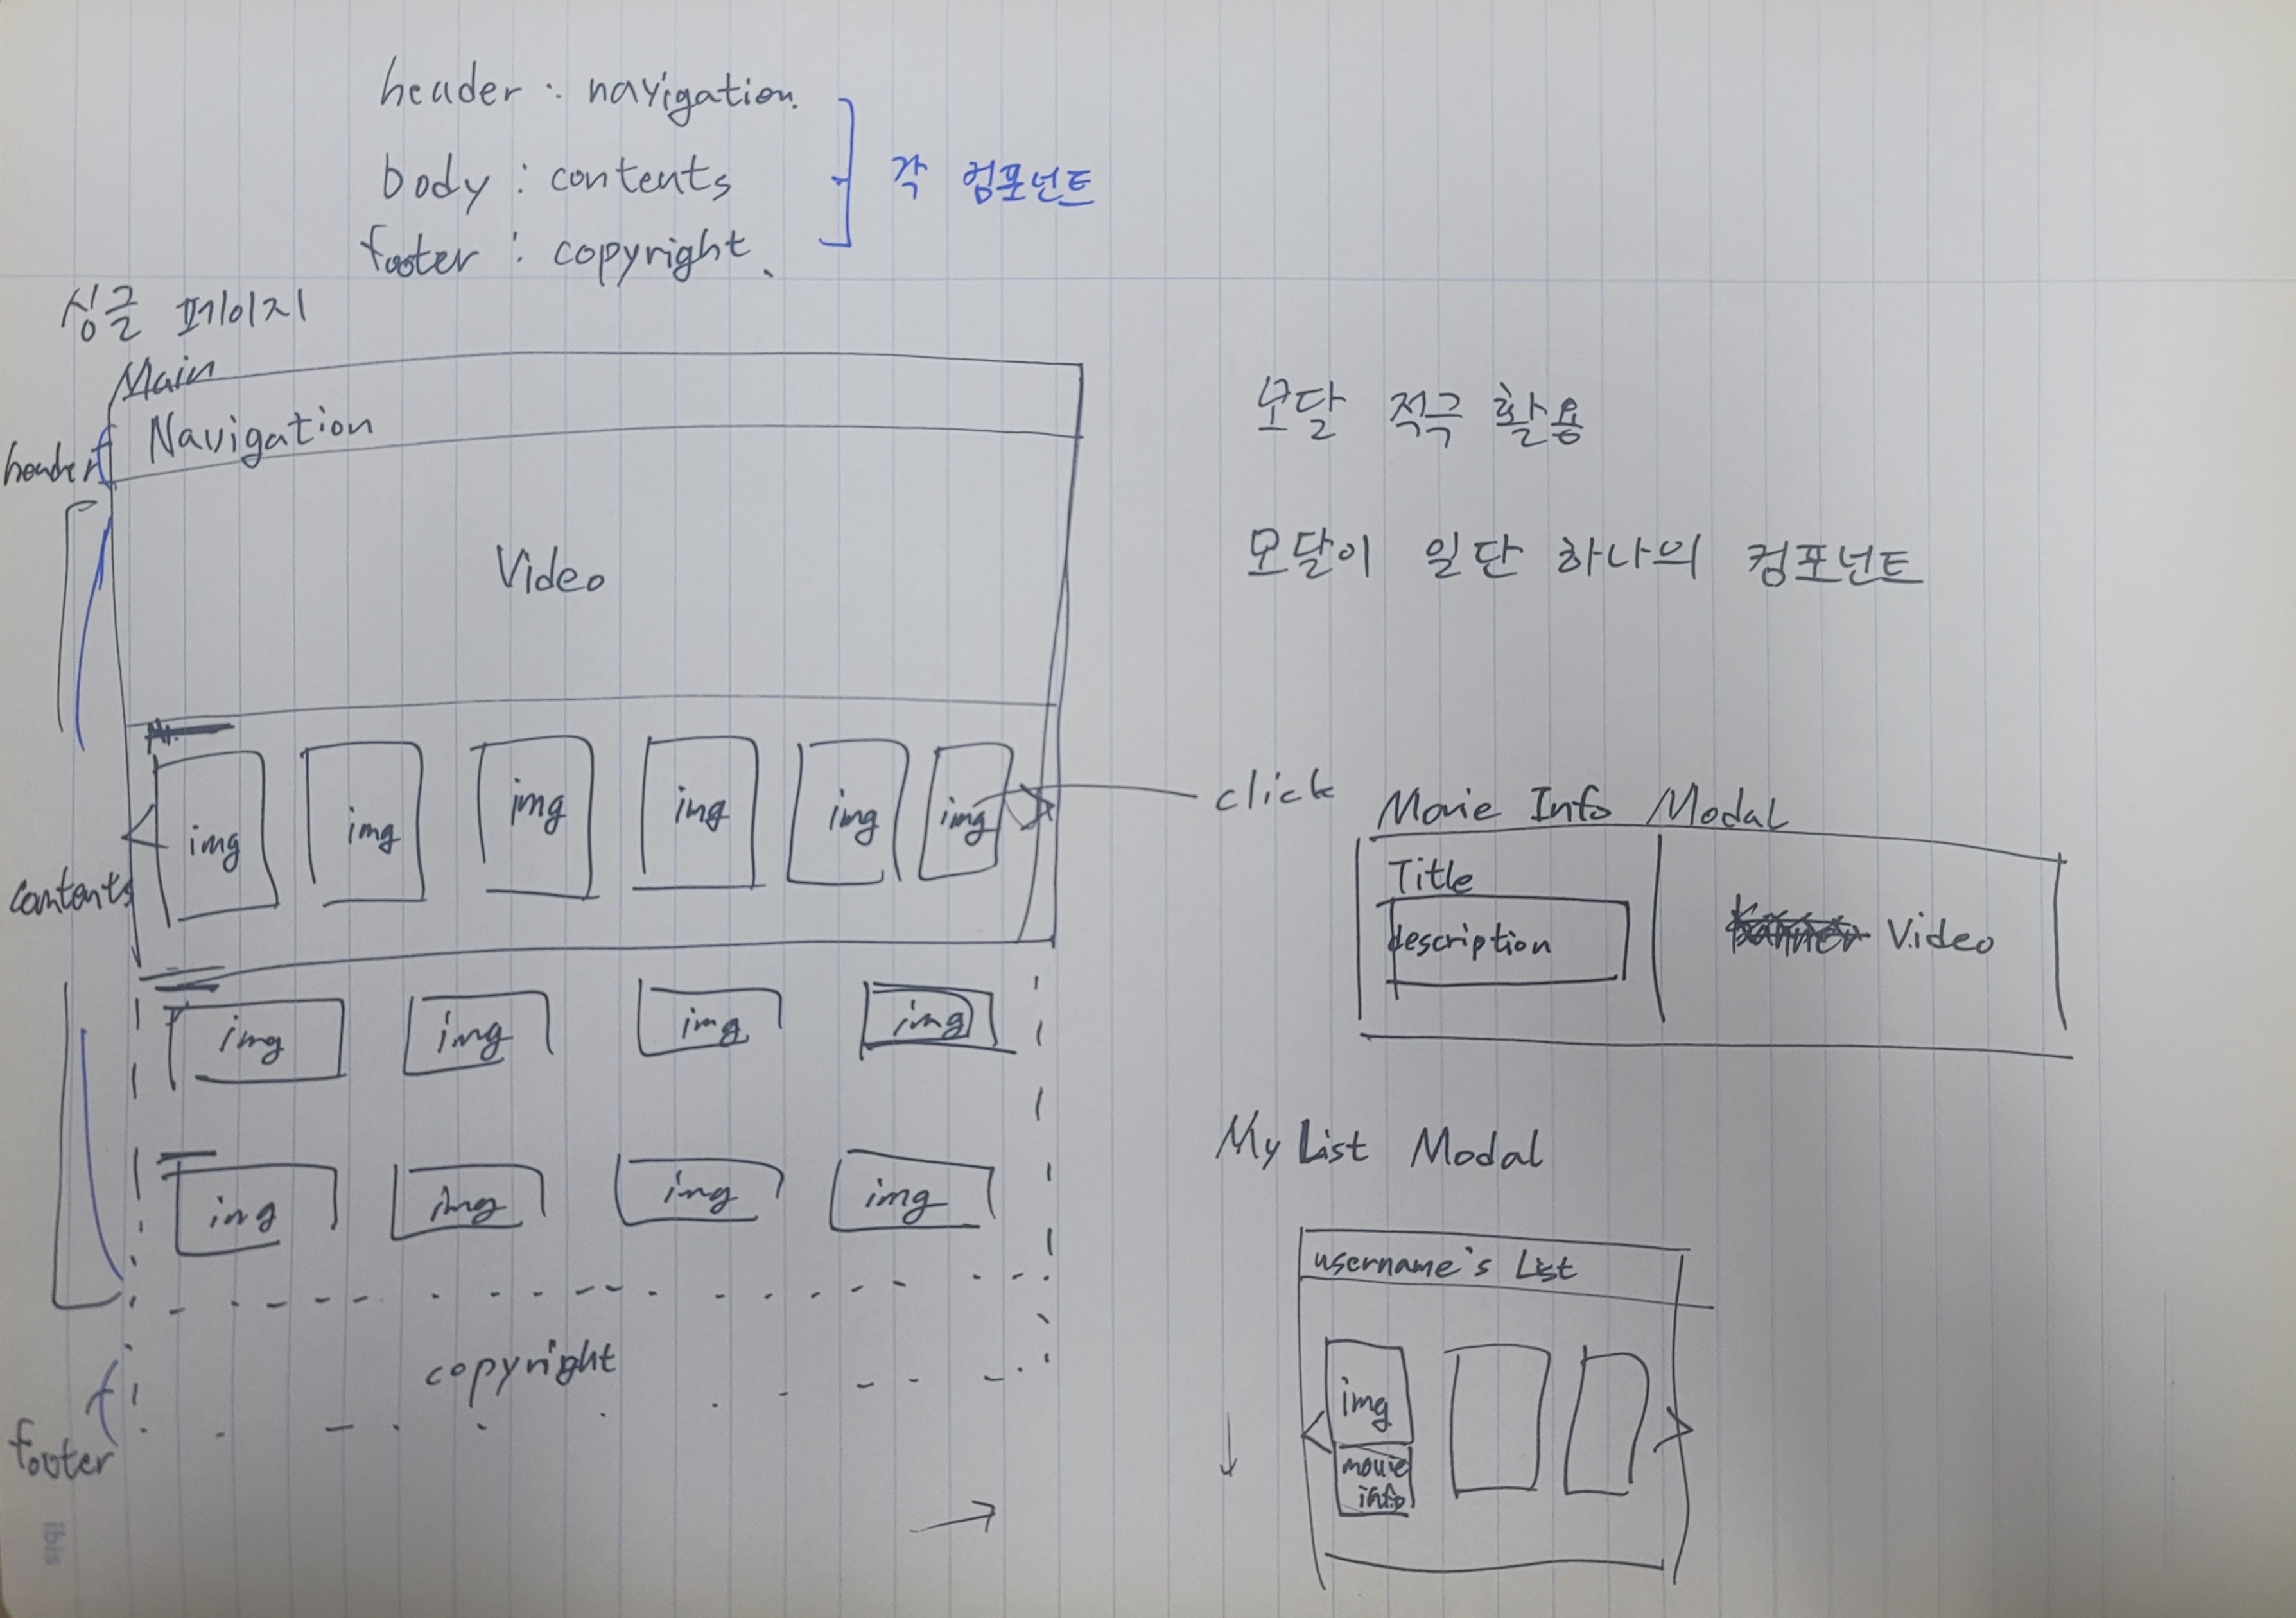 header : navigation.
body : contents
footer : copyright.
각 컴포넌트
싱글 페이지
Main
header
Navigation
Video
img img img img img img
click
contents
img img img img
img img img img
copyright
footer
모달 적극 활용
모달이 일단 하나의 컴포넌트
Movie Info Modal
Title
description
Video
My List Modal
username's List
img
movie
info
ibis